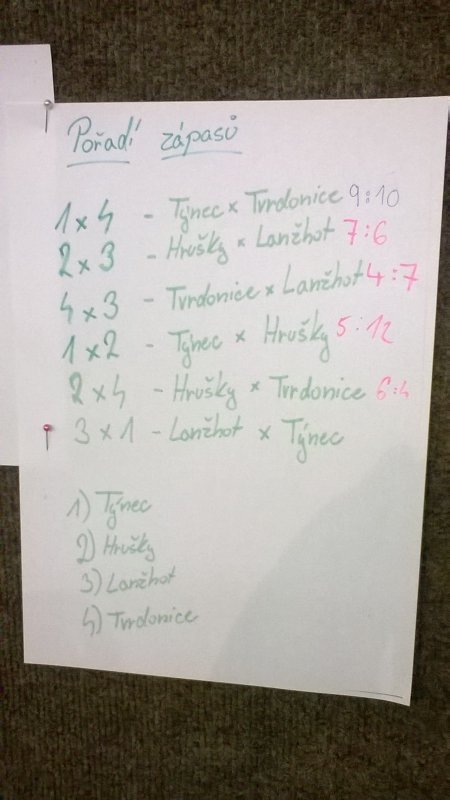 Pořadí zápasů
1x4 - Týnec x Tvrdonice 9:10
2x3 - Hrušky x Lanžhot 7:6
4x3 - Tvrdonice x Lanžhot 4:7
1x2 - Týnec x Hrušky 5:12
2x4 - Hrušky x Tvrdonice 6:4
3x1 - Lanžhot x Týnec
1) Týnec
2) Hrušky
3) Lanžhot
4) Tvrdonice